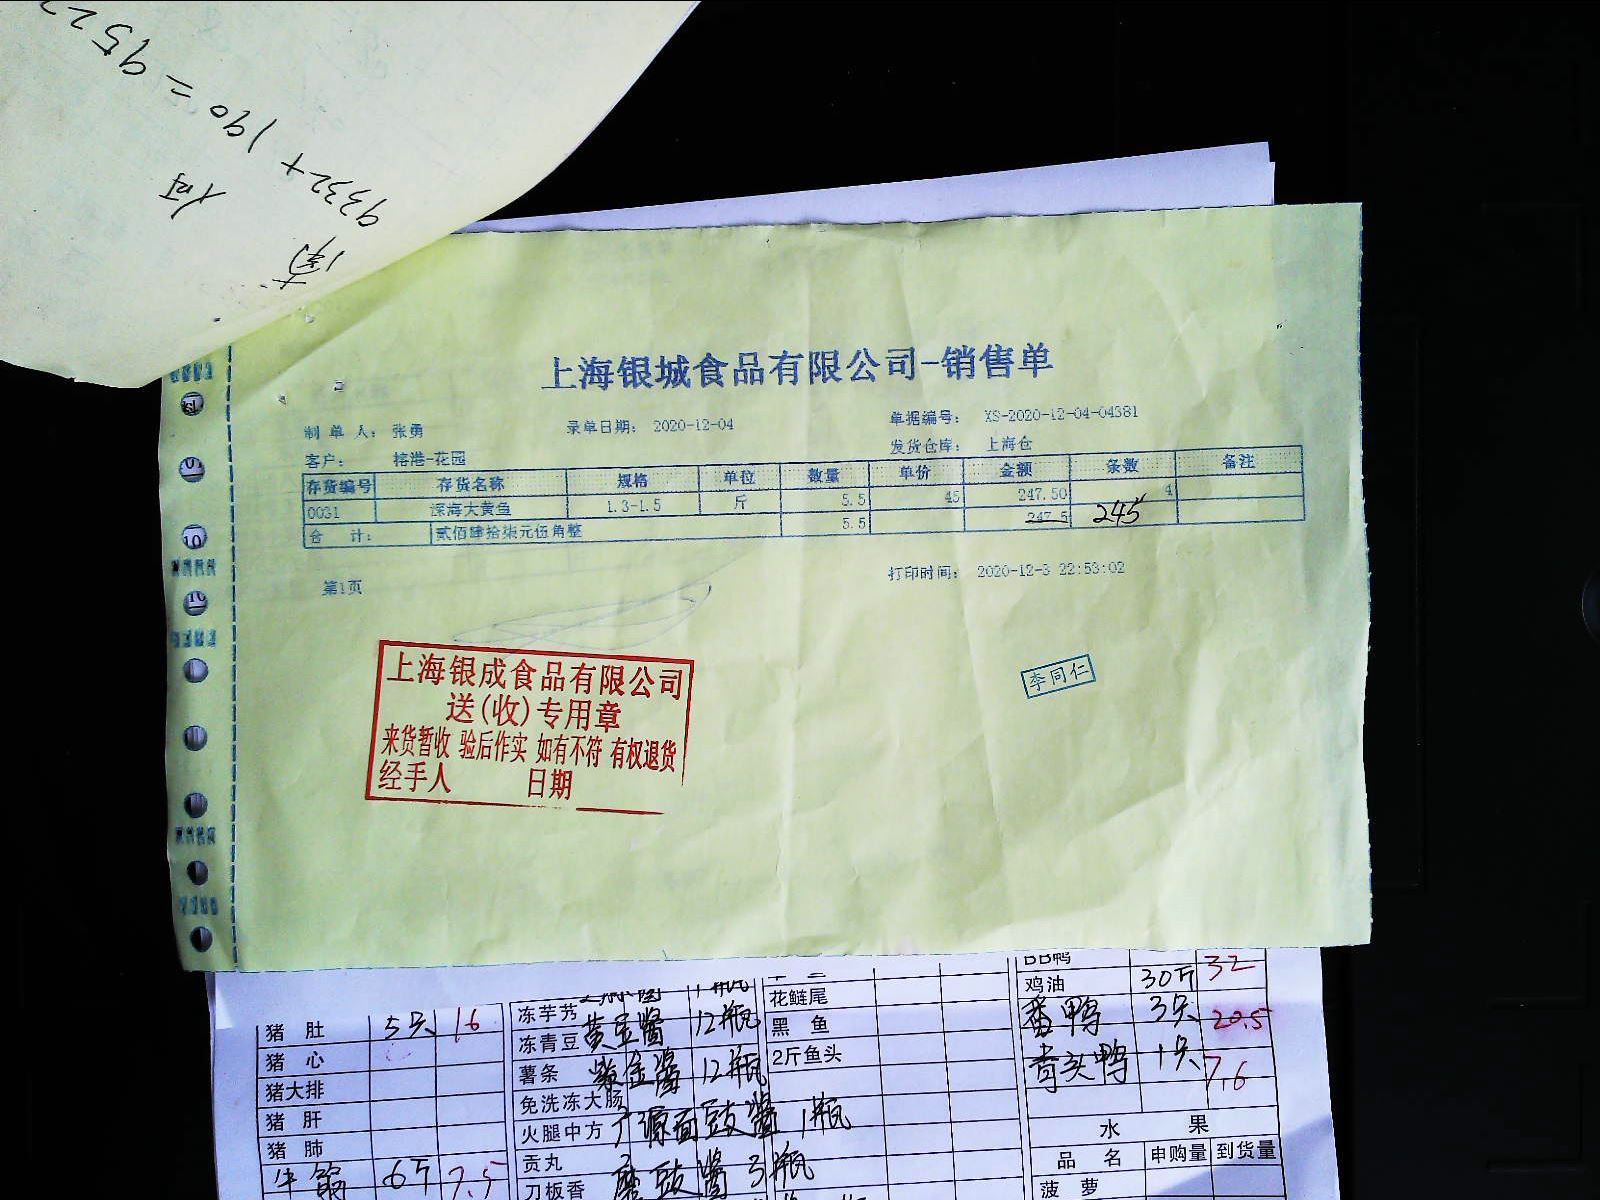 9332+190=952
南
何
上海银城食品有限公司-销售单
制 单 人: 张勇 录单日期: 2020-12-04 单据编号: XS-2020-12-04-04381
客户: 榕港-花园 发货仓库: 上海仓
存货编号 存货名称 规格 单位 数量 单价 金额 条数 备注
0031 深海大黄鱼 1.3-1.5 斤 5.5 45 247.50 4
合 计: 贰佰肆拾柒元伍角整 5.5 247.5 245
第1页 打印时间: 2020-12-3 22:53:02
上海银成食品有限公司
送(收)专用章
来货暂收 验后作实 如有不符 有权退货
经手人 日期
李同仁
猪 肚 5只 16
猪 心
猪大排
猪 肝
猪 肺
6斤 7.5
冻芋艿
冻青豆 黄豆酱 12瓶
薯条 紫金酱 12瓶
免洗冻大肠
火腿中方 广源面豉酱 1瓶
贡丸
刀板香 磨豉酱 3瓶
花鲢尾
黑 鱼
2斤鱼头
BB鸭 32
鸡油 30斤
番鸭 3只 20.5
青头鸭 1只 7.6
水 果
品 名 申购量 到货量
菠 萝